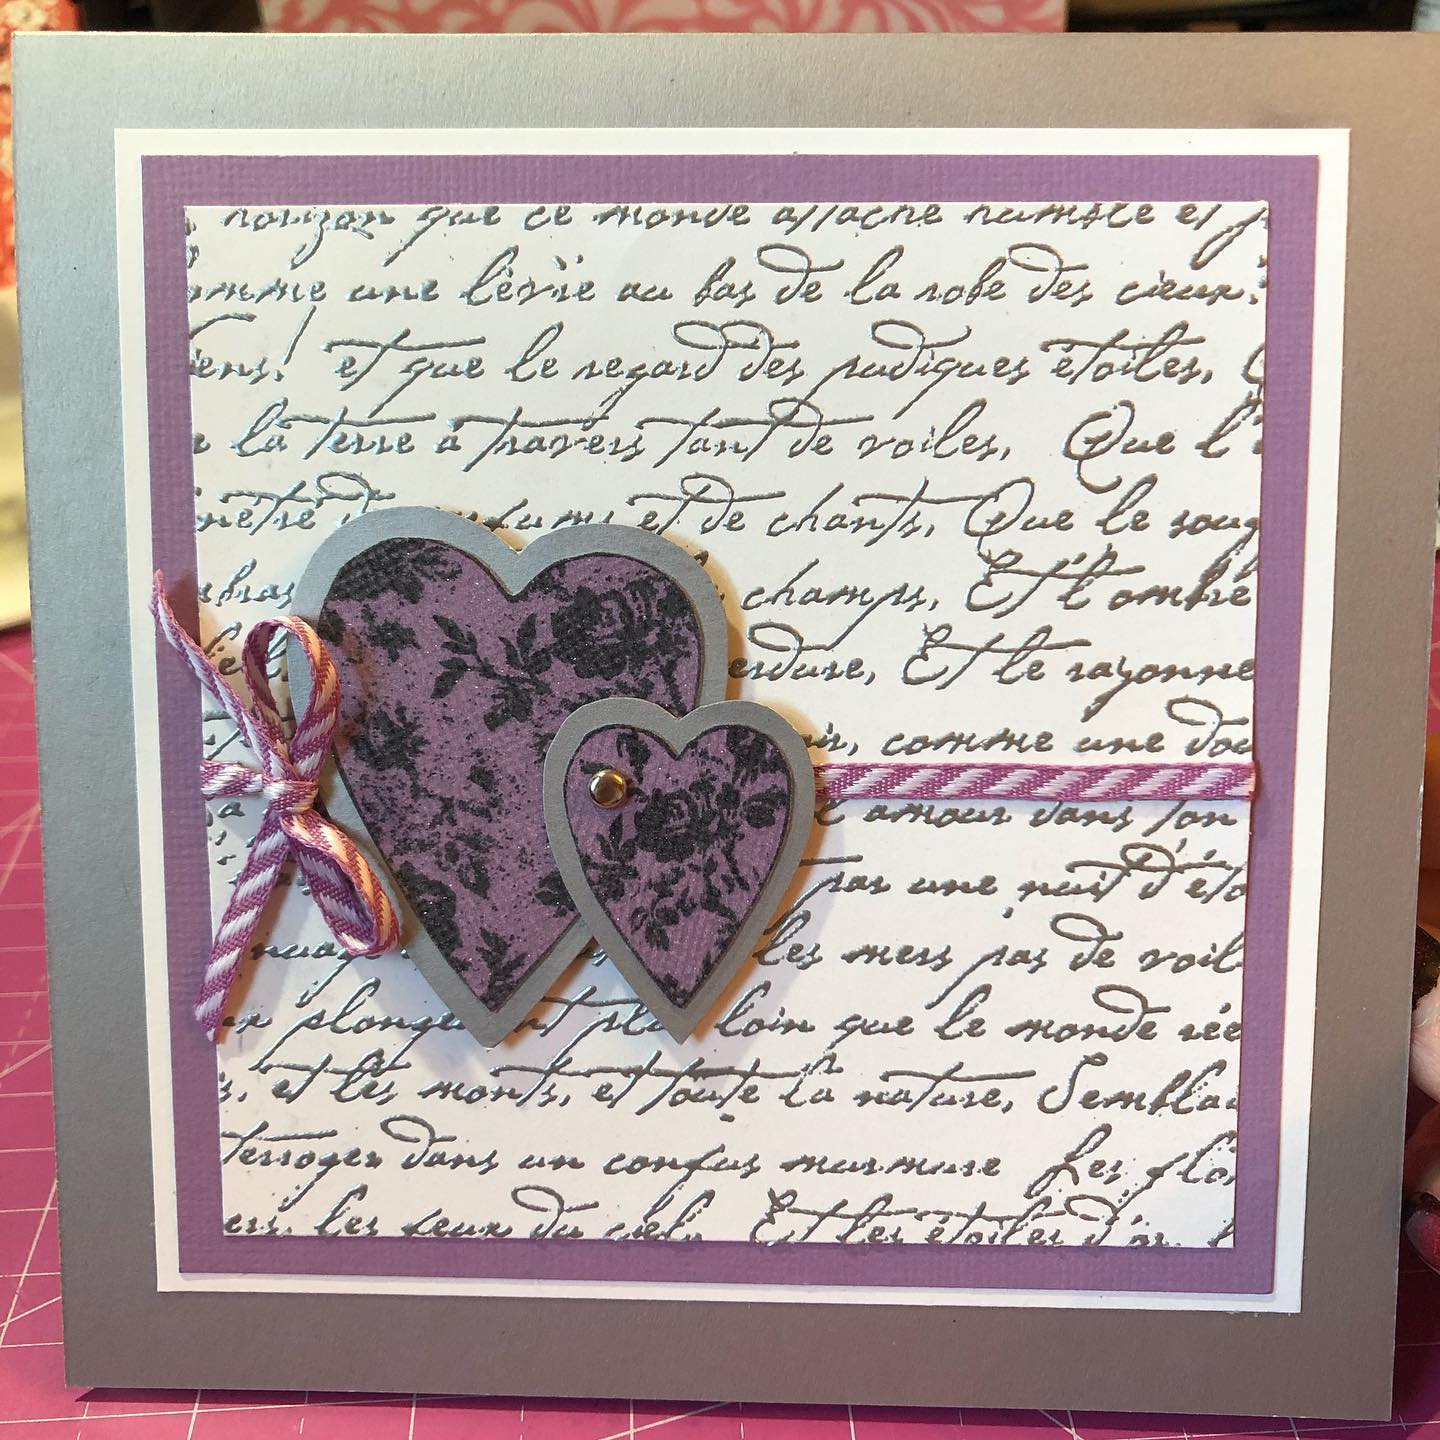 horizon que ce monde attache humble et
omme une lèvre au bas de la robe des cieux,
iens! et que le regard des pudiques étoiles,
la terre à travers tant de voiles, Que l'
nètré de parfums et de chants, Que le souf
champs, Et l'ombre
erdure, Et le rayonne
oir, comme une dou
l'amour dans ton
par une nuit d'été
nuag les mers pas de voil
plonge nt plu loin que le monde rée
s, et les monts, et toute la nature, Semblai
terroger dans un confus murmure Les flo
ers, les feux du ciel, Et les étoiles d'or, l